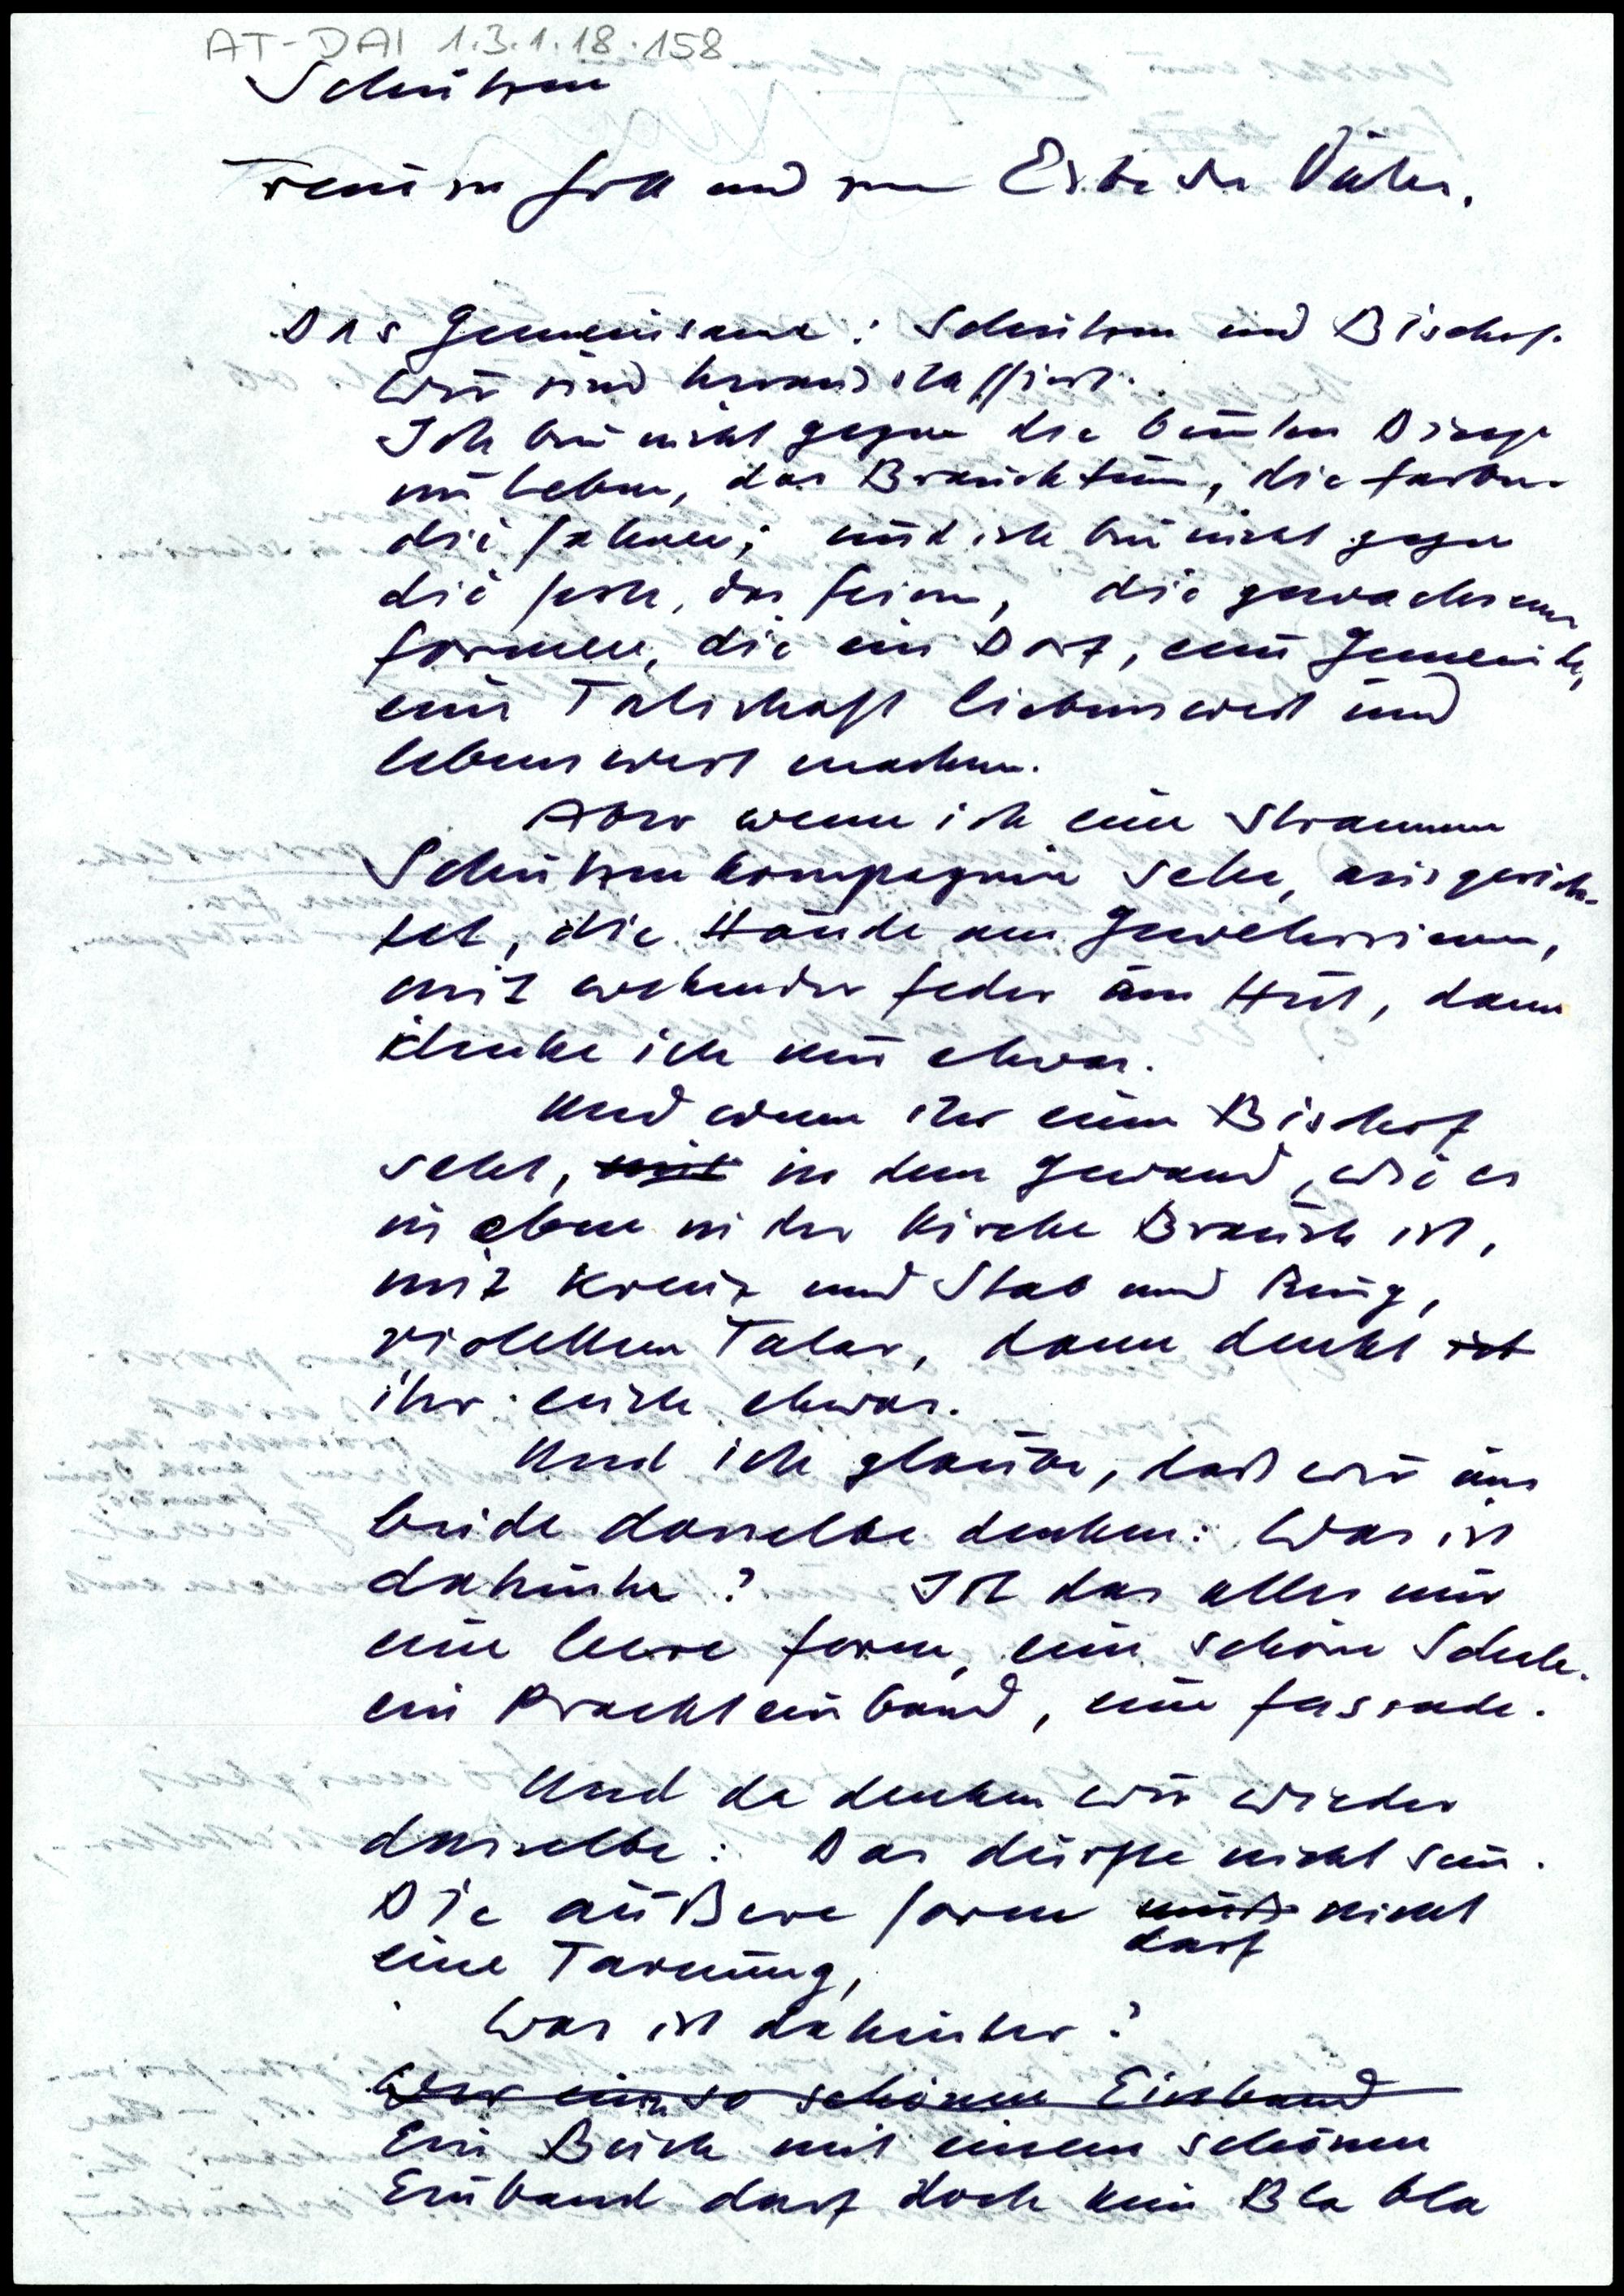 AT-DAI 1.3.1.18.158
Schützen
Treu zu Gott und zum Erbe der Väter.
Das Gemeinsame: Schützen und Bischof.
Wir sind herausstaffiert.
Ich bin nicht gegen die bunten Dinge
im Leben, das Brauchtum, die Farben
die Fahnen; und ich bin nicht gegen
die Feste, das Feiern, die gewachsenen
Formen, die ein Dorf, eine Gemeinde,
eine Talschaft liebenswert und
lebenswert machen.
Aber wenn ich eine stramme
Schützenkompagnie sehe, ausgerich-
tet, die Hände am Gewehrriemen,
mit wehender Feder am Hut, dann
denke ich mir etwas.
Und wenn ihr einen Bischof
seht, mit in dem Gewand, wie es
nun eben in der Kirche Brauch ist,
mit Kreuz und Stab und Ring,
violettem Talar, dann denkt ist
ihr euch etwas.
Und ich glaube, daß wir uns
beide dasselbe denken: Was ist
dahinter? Ist das alles nur
eine leere Form, eine schöne Schale.
ein Prachteinband, eine Fassade.
Und da denken wir wieder
dasselbe: Das dürfte nicht sein.
Die äußere Form muß nicht
darf
eine Tarnung,
Was ist dahinter?
Wer einen so schönen Einband
Ein Buch mit einem schönen
Einband darf doch kein Bla bla